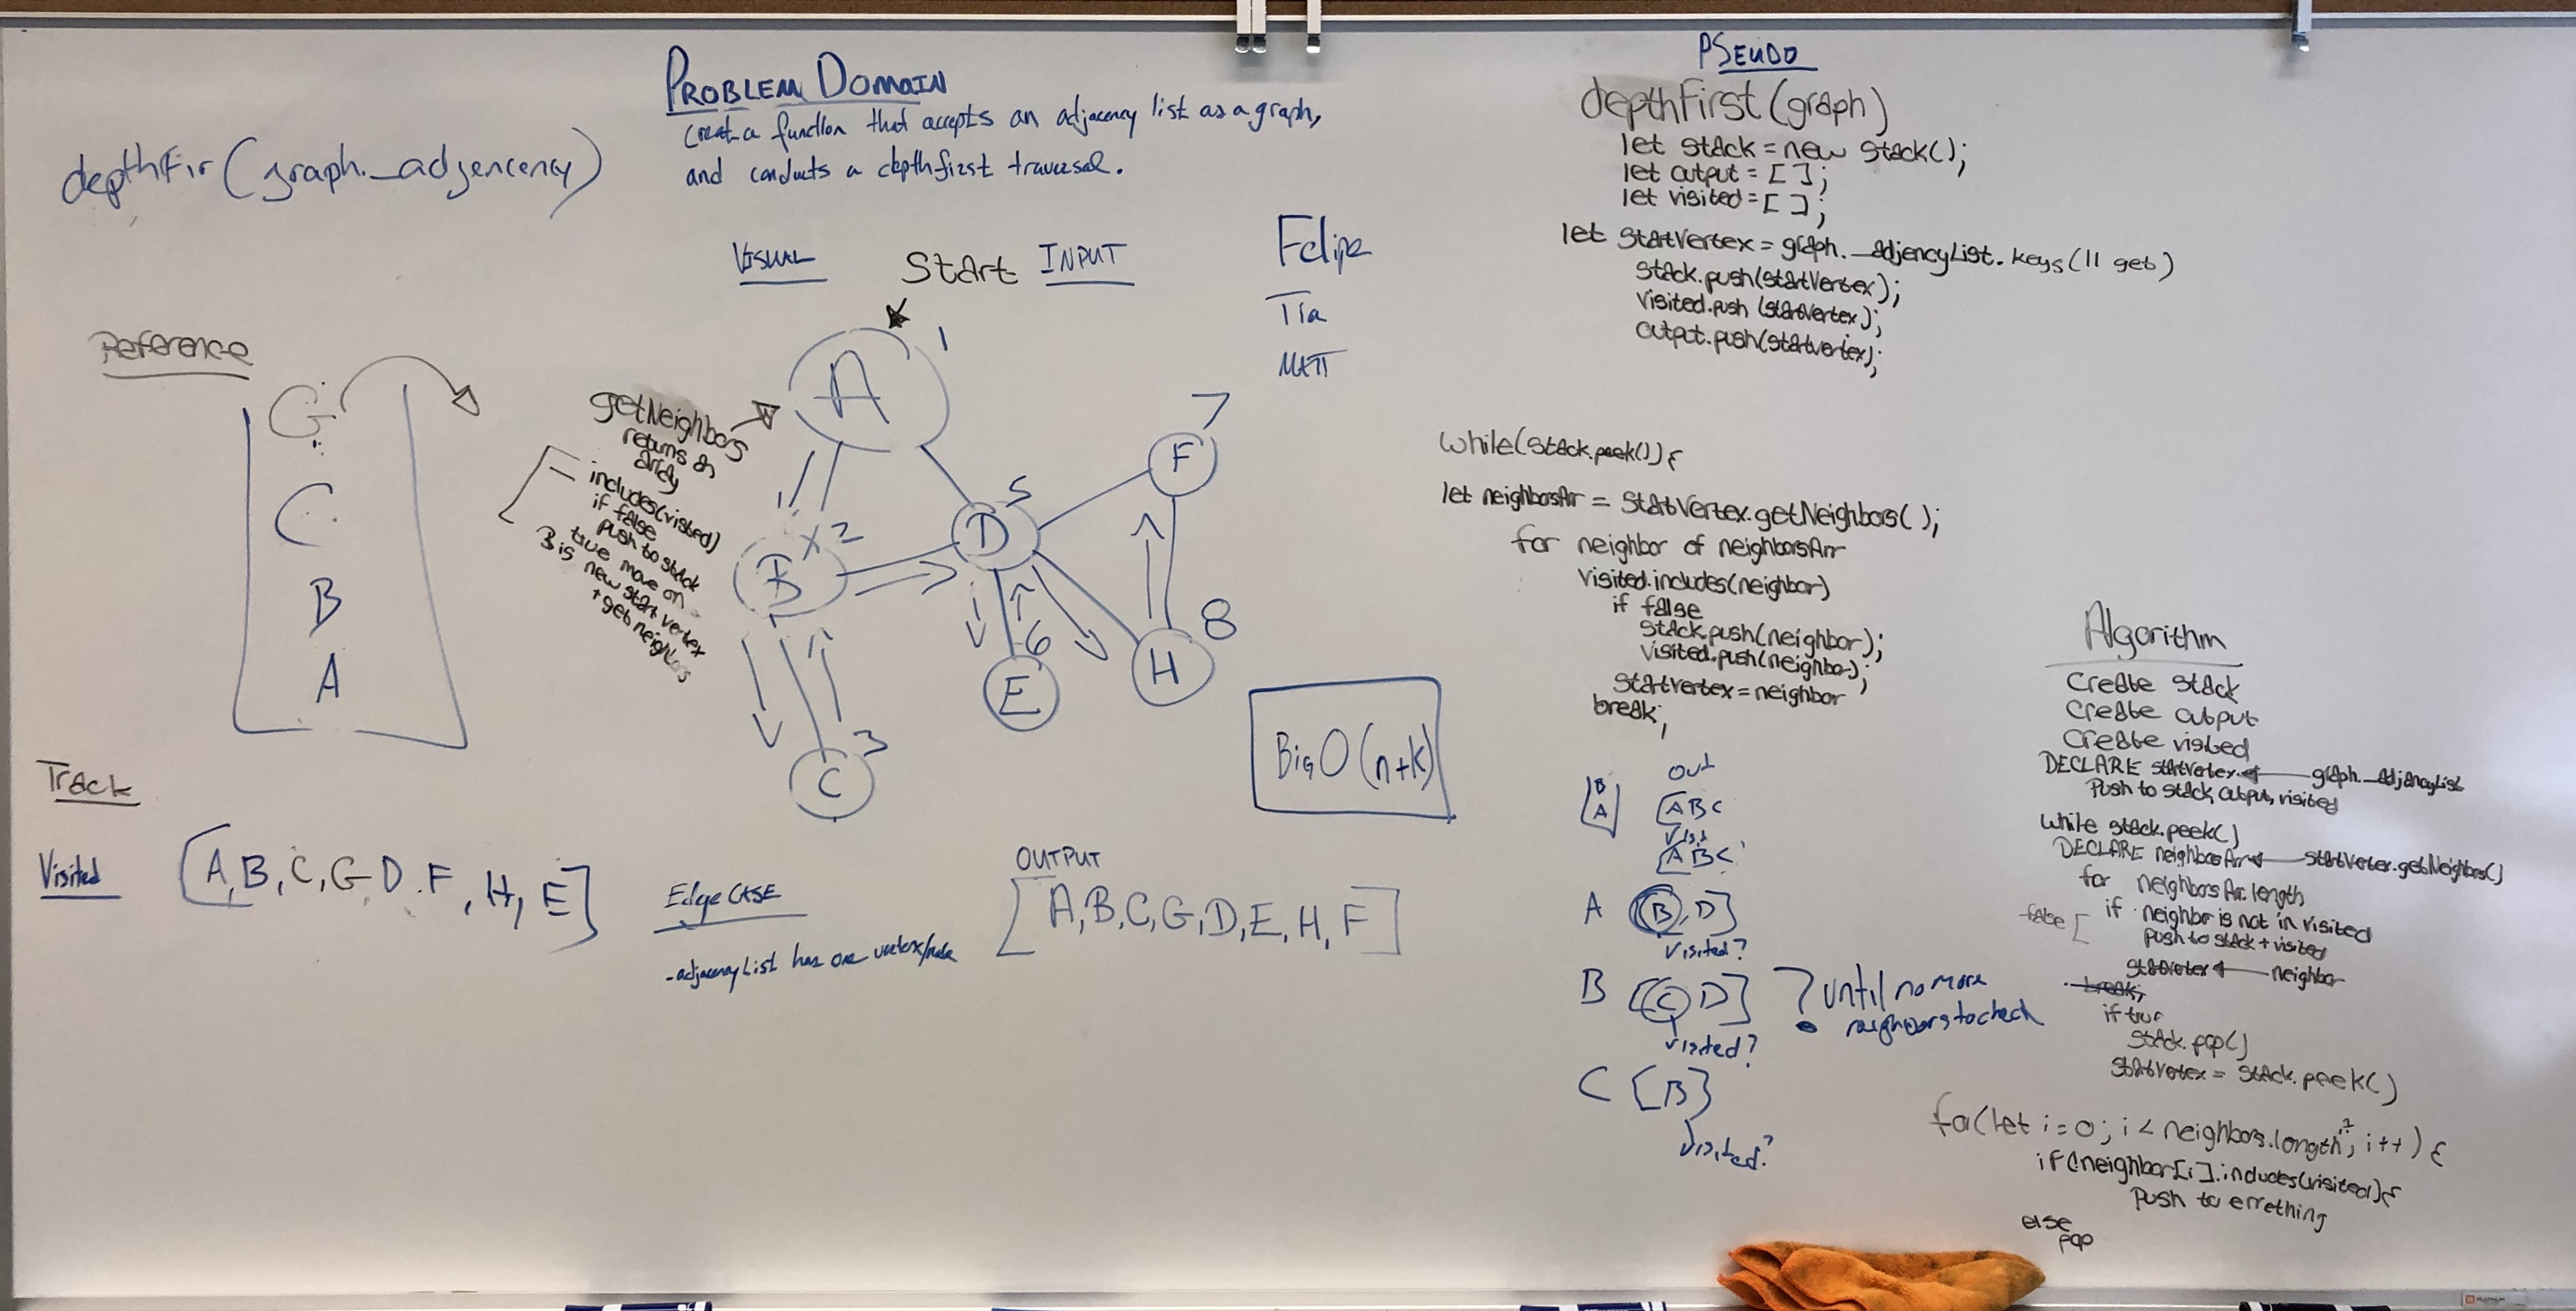 PROBLEM DOMAIN
Creat a function that accepts an adjacency list as a graph,
and conducts a depthfirst traversal.
depthFir(graph._adjencency)
VISUAL
Start
INPUT
Felipe
Tia
MATT
Reference
G
C
B
A
getNeighbors
returns an
array
includes(visited)
if false
push to stack
true move on
B is new start vertex
+ get neighbors
A
1
B
x2
C
3
D
5
E
6
F
7
H
8
BigO(n+k)
Track
Visited
[A,B,C,G D.F,H,E]
Edge CASE
-adjacencyList has one vertex/node
OUTPUT
[A,B,C,G,D,E,H,F]
PSEUDO
depthFirst(graph)
let stack = new Stack();
let output = [ ];
let visited = [ ];
let startVertex = graph._adjencyList.keys(|| get)
stack.push(startVertex);
visited.push(startVertex);
output.push(startvertex);
while(stack.peek()){
let neighborsArr = StartVertex.getNeighbors( );
for neighbor of neighborsArr
visited.includes(neighbor)
if false
stack.push(neighbor);
visited.push(neighbor);
startVertex = neighbor
break;
B
A
out
[ABC
Visi
[ABC
A [B,D]
Visited?
B [C D] ? until no more
neighbors to check
visited?
C [B]
Visited?
Algorithm
Create stack
Create output
Create visited
DECLARE startVertex graph._adjancyList
Push to stack, output, visited
while stack.peek()
DECLARE neighborsArr startVertex.getNeighbors()
for neighborsArr.length
false [ if neighbor is not in visited
push to stack + visited
startVertex neighbor
break;
if true
stack.pop()
startVertex = stack.peek()
for(let i=0; i < neighbors.length; i++) {
if(!neighbor[i].includes(visited){
Push to errething
else
pop